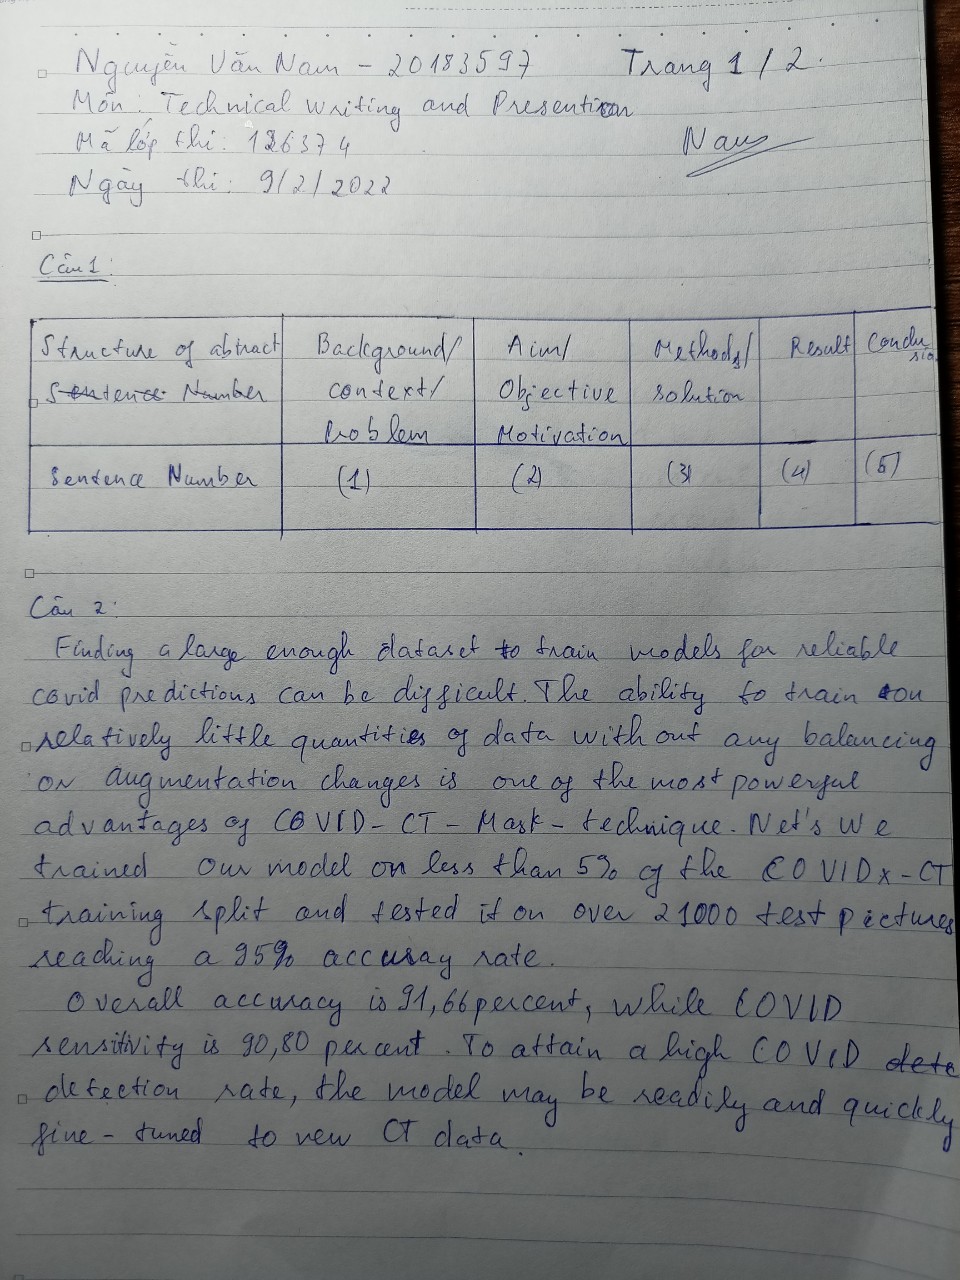 Nguyễn Văn Nam - 20183597 Trang 1 / 2.
Môn : Technical writing and Presention
Mã lớp thi: 126374
Nam
Ngày thi: 9/2/2022
Câu 1:
Structure of abtract Background/ Aim/ Methods/ Result Conclu
Sentence Number context/ Objective solution sion
Problem Motivation
Sentence Number (1) (2) (3) (4) (5)
Câu 2:
Finding a large enough dataset to train models for reliable
covid predictions can be difficult. The ability to train on
relatively little quantities of data without any balancing
or augmentation changes is one of the most powerful
advantages of COVID-CT-Mask-technique. Net's We
trained Our model on less than 5% of the COVIDx-CT
training split and tested it on over 21000 test pictures
reaching a 95% accuray rate.
Overall accuracy is 91,66 percent, while COVID
sensitivity is 90,80 percent. To attain a high COVID dete
detection rate, the model may be readily and quickly
fine-tuned to new CT data.